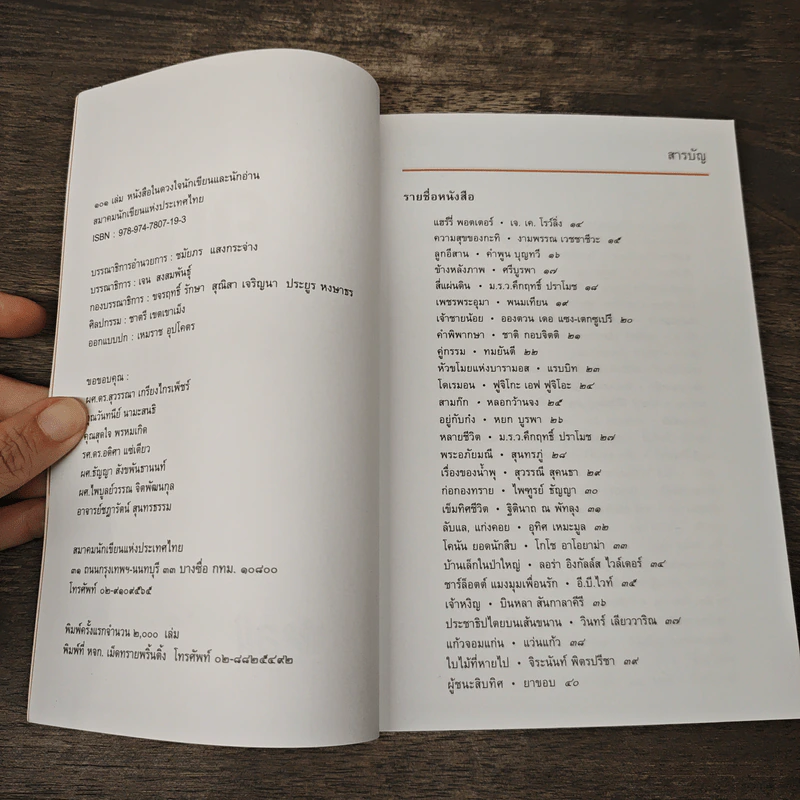 ๑๐๑ เล่ม หนังสือในดวงใจนักเขียนและนักอ่าน
สมาคมนักเขียนแห่งประเทศไทย
ISBN : 978-974-7807-19-3
บรรณาธิการอำนวยการ : ชมัยภร แสงกระจ่าง
บรรณาธิการ : เจน สงสมพันธุ์
กองบรรณาธิการ : ขจรฤทธิ์ รักษา สุณิสา เจริญนา ประยูร หงษาธร
ศิลปกรรม : ชาตรี เขตเขาเม็ง
ออกแบบปก : เหมราช อุปโคตร
ขอขอบคุณ :
ผศ.ดร.สุวรรณา เกรียงไกรเพ็ชร์
คุณวันทนีย์ นามะสนธิ
คุณสุดใจ พรหมเกิด
รศ.ดร.อดิศา แซ่เตียว
ผศ.ธัญญา สังขพันธานนท์
ผศ.ไพบูลย์วรรณ จิตพัฒนกุล
อาจารย์ชฎารัตน์ สุนทรธรรม
สมาคมนักเขียนแห่งประเทศไทย
๓๑ ถนนกรุงเทพฯ-นนทบุรี ๓๓ บางซื่อ กทม. ๑๐๘๐๐
โทรศัพท์ ๐๒-๙๑๐๙๕๖๕
พิมพ์ครั้งแรกจำนวน ๒,๐๐๐ เล่ม
พิมพ์ที่ หจก. เม็ดทรายพริ้นติ้ง โทรศัพท์ ๐๒-๘๘๒๕๔๙๒
สารบัญ
รายชื่อหนังสือ
แฮร์รี่ พอตเตอร์ • เจ. เค. โรว์ลิ่ง ๑๔
ความสุขของกะทิ • งามพรรณ เวชชาชีวะ ๑๕
ลูกอีสาน • คำพูน บุญทวี ๑๖
ข้างหลังภาพ • ศรีบูรพา ๑๗
สี่แผ่นดิน • ม.ร.ว.คึกฤทธิ์ ปราโมช ๑๘
เพชรพระอุมา • พนมเทียน ๑๙
เจ้าชายน้อย • อองตวน เดอ แซง-เตกซูเปรี ๒๐
คำพิพากษา • ชาติ กอบจิตติ ๒๑
คู่กรรม • ทมยันตี ๒๒
หัวขโมยแห่งบารามอส • แรบบิท ๒๓
โดเรมอน • ฟูจิโกะ เอฟ ฟูจิโอะ ๒๔
สามก๊ก • หลอกว้านจง ๒๕
อยู่กับก๋ง • หยก บูรพา ๒๖
หลายชีวิต • ม.ร.ว.คึกฤทธิ์ ปราโมช ๒๗
พระอภัยมณี • สุนทรภู่ ๒๘
เรื่องของน้ำพุ • สุวรรณี สุคนธา ๒๙
ก่อกองทราย • ไพฑูรย์ ธัญญา ๓๐
เข็มทิศชีวิต • ฐิตินาถ ณ พัทลุง ๓๑
ลับแล, แก่งคอย • อุทิศ เหมะมูล ๓๒
โคนัน ยอดนักสืบ • โกโช อาโอยาม่า ๓๓
บ้านเล็กในป่าใหญ่ • ลอร่า อิงกัลล์ส ไวล์เดอร์ ๓๔
ชาร์ล็อตต์ แมงมุมเพื่อนรัก • อี.บี.ไวท์ ๓๕
เจ้าหงิญ • บินหลา สันกาลาคีรี ๓๖
ประชาธิปไตยบนเส้นขนาน • วินทร์ เลียววาริณ ๓๗
แก้วจอมแก่น • แว่นแก้ว ๓๘
ใบไม้ที่หายไป • จิระนันท์ พิตรปรีชา ๓๙
ผู้ชนะสิบทิศ • ยาขอบ ๔๐